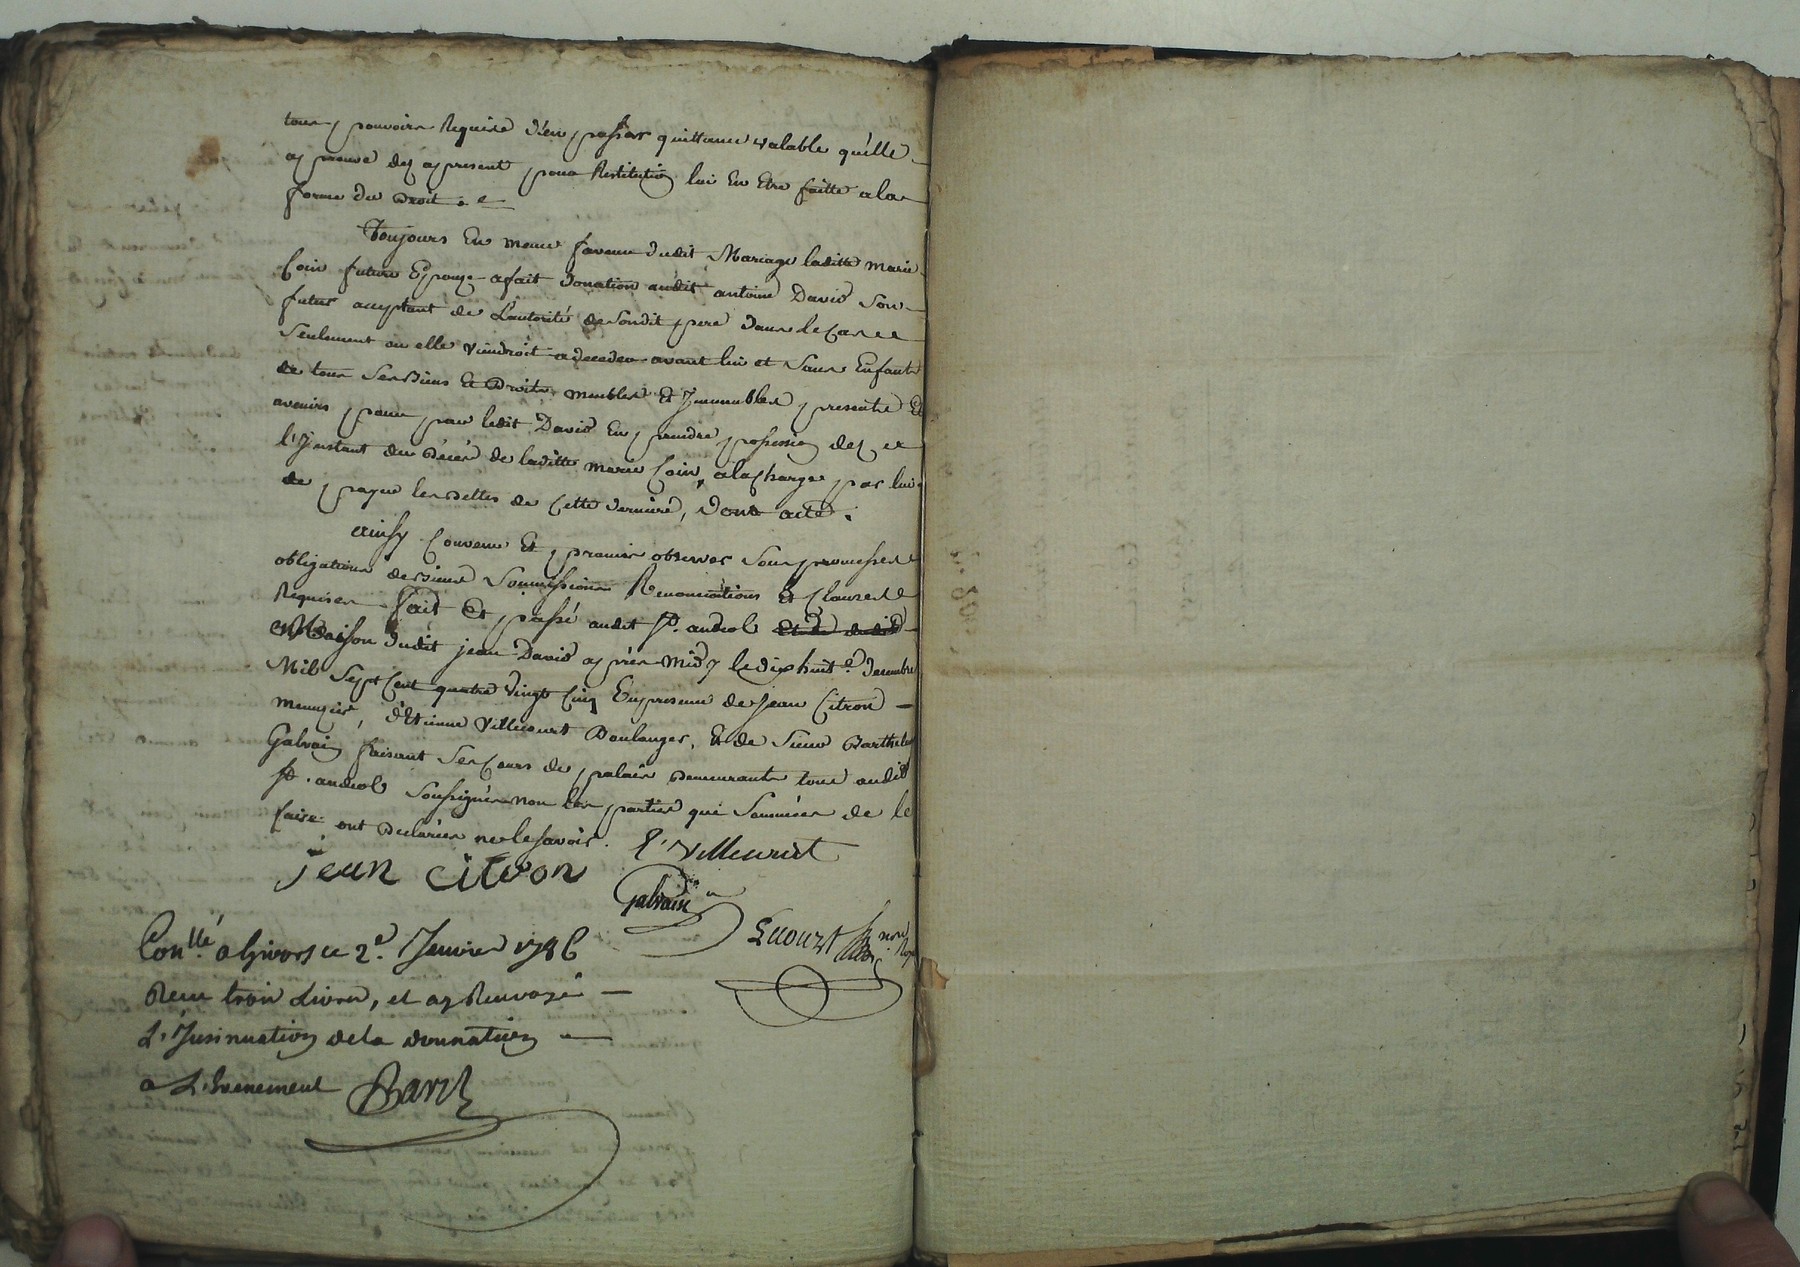 tous pouvoirs Requis d'en passer quittance valable quelle
aprouve dez apresent pour Restitution lui en Etre faitte a la
forme du Droit. &
Toujours En meme faveur dudit Mariage laditte marie
Coin future Epouze a fait donation audit antoine David Son
futur acceptant de L'autorité de Sondit pere dans le Cas
Seulement ou elle viendroit a deceder avant lui et Sans Enfants
de tous Ses Biens Et Droits meubles Et Immeubles presents Et
avenirs pour par ledit David En prendre possession dez
l'Instant du Décés de laditte marie Coin, ala Charge par lui
de payer les Dettes de Cette derniere, dont acte.
ainsy Convenu Et promis observer Sous promesses
obligations de biens Soumissions Renonciations Et Clauses
Requises fait Et passé audit St. andeol
Maison dudit jean David après Midy le dix huit e. Decembre
Mil Sept Cent quatre vingt Cinq En presence de Jean Citron
meunier, d'Etienne Villecourt Boulanger, Et de Sieur Barthelemy
Galvain faisant Ses Cours de palais Demeurants tous audit
St. andeol Soussignés non les parties qui Sommées de le
faire ont Declarées ne le Savoir. E. Villecourt
jean citron
Galvain
Conllé. a Givors ce 2e. Janvier 1786
Recu trois Livres, et ay Renvoyé
L'Insinuation de la donnation
a L'Evenement